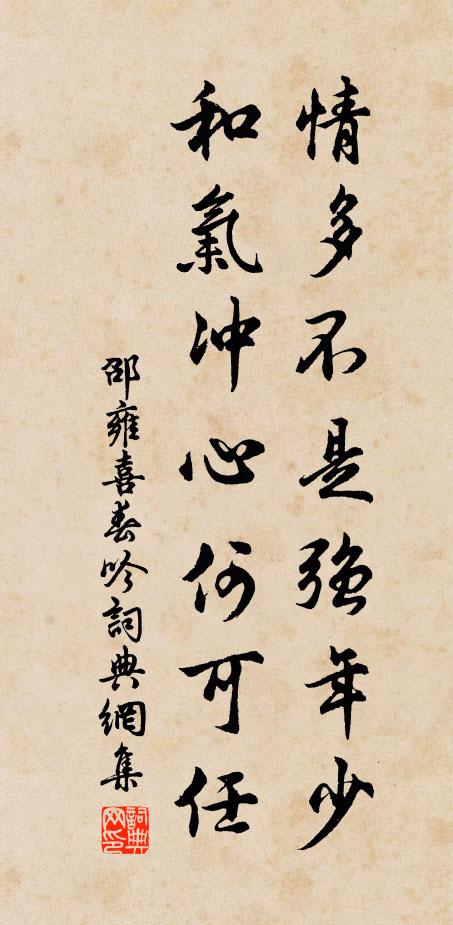 情多不是強年少
和氣冲心何可任
邵雍喜春吟詞典網集
詞典網印